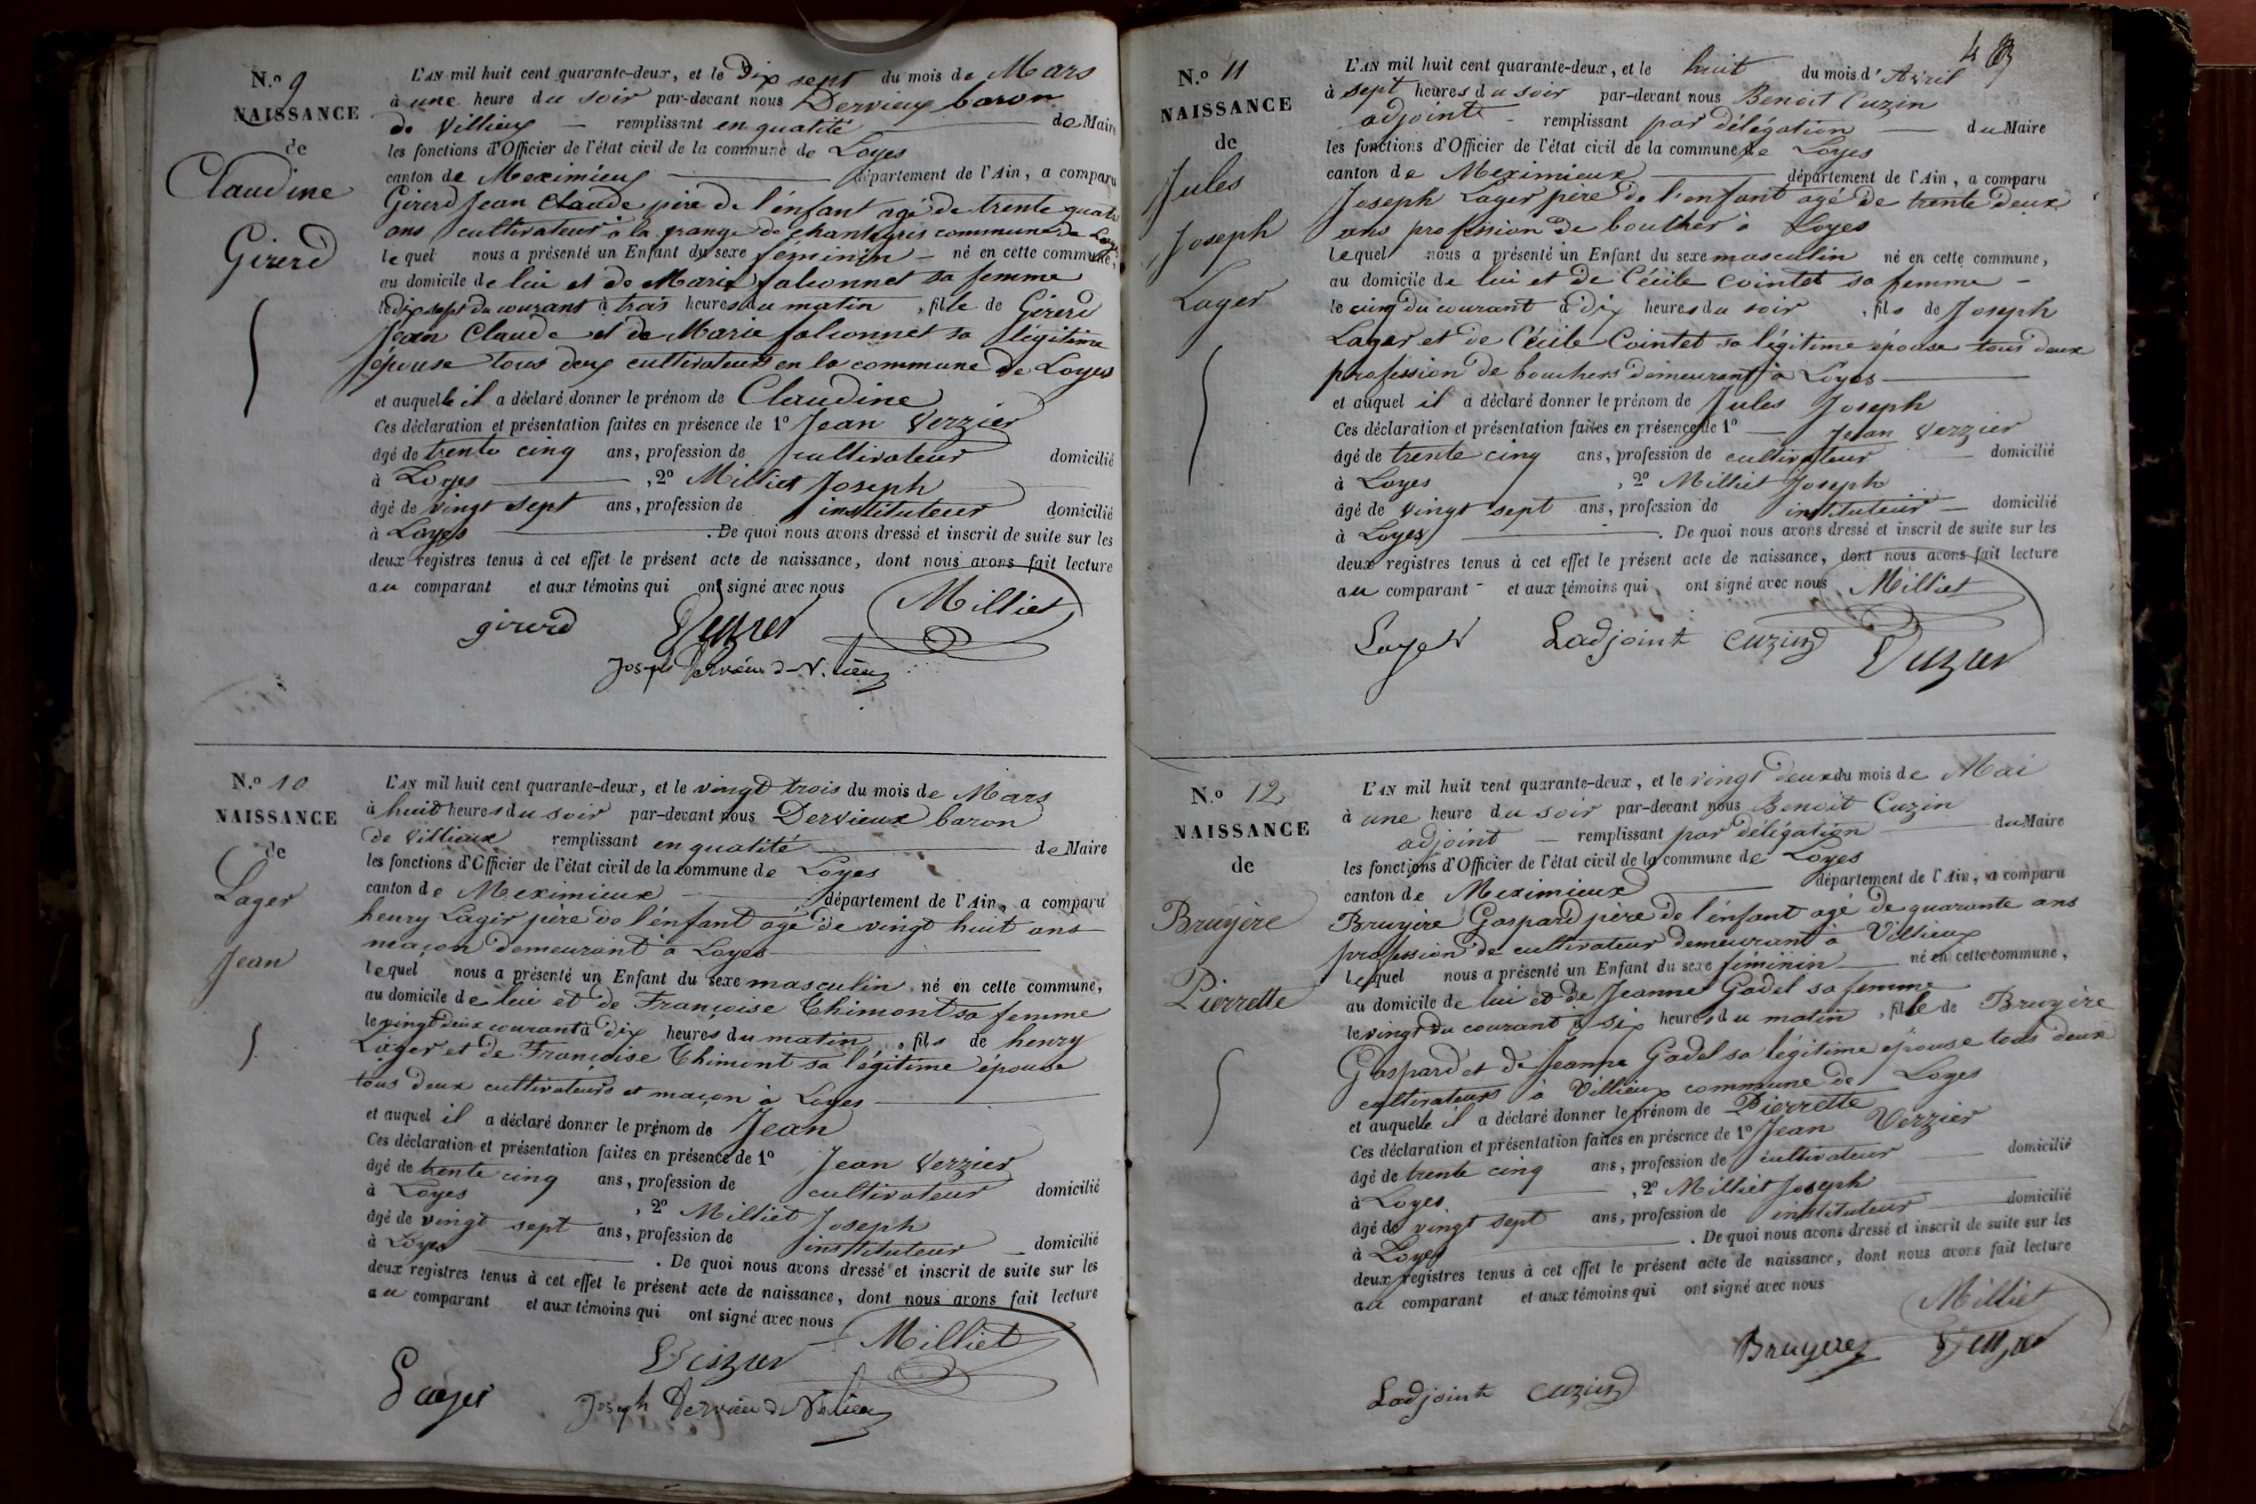 N.º 9
NAISSANCE
de
Claudine
Girerd
L'AN mil huit cent quarante-deux, et le Dix sept du mois de Mars
à une heure du soir par-devant nous Dervieux baron
de Villieux remplissant en qualité de Maire
les fonctions d'Officier de l'état civil de la commune de Loyes
canton de Meximieux département de l'Ain, a comparu
Girerd Jean Claude père de l'énfant agé de trente quatre
ans cultivateur à la grange de chantagris commune de Loyes
lequel nous a présenté un Enfant du sexe féminin né en cette commune,
au domicile de lui et de Marie falconnet sa femme
le dix sept du courant à trois heures du matin, fille de Girerd
Jean Claude et de Marie falconnet sa légitime
épouse tous deux cultivateurs en la commune de Loyes
et auquelle il a déclaré donner le prénom de Claudine
Ces déclaration et présentation faites en présence de 1º Jean Verzier
âgé de trente cinq ans, profession de cultivateur domicilié
à Loyes, 2º Milliet Joseph
âgé de vingt sept ans, profession de instituteur domicilié
à Loyes. De quoi nous avons dressé et inscrit de suite sur les
deux registres tenus à cet effet le présent acte de naissance, dont nous avons fait lecture
au comparant et aux témoins qui ont signé avec nous
Milliet
girerd
Joseph Dervieu d V.lieu
N.º 10
NAISSANCE
de
Lager
Jean
L'AN mil huit cent quarante-deux, et le vingt trois du mois de Mars
à huit heures du soir par-devant nous Dervieux baron
de Villieux remplissant en qualité de Maire
les fonctions d'Officier de l'état civil de la commune de Loyes
canton de Meximieux département de l'Ain, a comparu
henry Lager père de l'énfant agé de vingt huit ans
maçon demeurant à Loyes
lequel nous a présenté un Enfant du sexe masculin né en cette commune,
au domicile de lui et de Françoise Thimont sa femme
le vingt deux courant à dix heures du matin, fils de henry
Lager et de Françoise Thimont sa légitime épouse
tous deux cultivateurs et maçon à Loyes
et auquel il a déclaré donner le prénom de Jean
Ces déclaration et présentation faites en présence de 1º Jean Verzier
âgé de trente cinq ans, profession de cultivateur domicilié
à Loyes, 2º Milliet Joseph
âgé de vingt sept ans, profession de instituteur domicilié
à Loyes. De quoi nous avons dressé et inscrit de suite sur les
deux registres tenus à cet effet le présent acte de naissance, dont nous avons fait lecture
au comparant et aux témoins qui ont signé avec nous
Milliet
Joseph Dervieu d Vilieu
48
N.º 11
NAISSANCE
de
Jules
Joseph
Lager
L'AN mil huit cent quarante-deux, et le huit du mois d'Avril
à sept heures du soir par-devant nous Benoit Cuzin
adjoint remplissant par délégation du Maire
les fonctions d'Officier de l'état civil de la commune de Loyes
canton de Meximieux département de l'Ain, a comparu
Joseph Lager père de l'enfant agé de trente deux
ans profession de boucher à Loyes
lequel nous a présenté un Enfant du sexe masculin né en cette commune,
au domicile de lui et de Cécile Cointet sa femme
le cinq du courant à dix heures du soir, fils de Joseph
Lager et de Cécile Cointet sa légitime épouse tous deux
profession de bouchers demeurant à Loyes
et auquel il a déclaré donner le prénom de Jules Joseph
Ces déclaration et présentation faites en présence de 1º Jean Verzier
âgé de trente cinq ans, profession de cultivateur domicilié
à Loyes, 2º Milliet Joseph
âgé de vingt sept ans, profession de instituteur domicilié
à Loyes. De quoi nous avons dressé et inscrit de suite sur les
deux registres tenus à cet effet le présent acte de naissance, dont nous avons fait lecture
au comparant et aux témoins qui ont signé avec nous
Milliet
Ladjoint Cuzin
N.º 12
NAISSANCE
de
Bruyère
Pierrette
L'AN mil huit cent quarante-deux, et le vingt deux du mois de Mai
à une heure du soir par-devant nous Benoit Cuzin
adjoint remplissant par délégation du Maire
les fonctions d'Officier de l'état civil de la commune de Loyes
canton de Meximieux département de l'Ain, a comparu
Bruyère Gaspard père de l'énfant agé de quarante ans
profession de cultivateur demeurant à Villieux
lequel nous a présenté un Enfant du sexe féminin né en cette commune,
au domicile de lui et de Jeanne Gadel sa femme
le vingt du courant à six heures du matin, fille de Bruyère
Gaspard et de Jeanne Gadel sa légitime épouse tous deux
cultivateurs à Villieux commune de Loyes
et auquelle il a déclaré donner le prénom de Pierrette
Ces déclaration et présentation faites en présence de 1º Jean Verzier
âgé de trente cinq ans, profession de cultivateur domicilié
à Loyes, 2º Milliet Joseph
âgé de vingt sept ans, profession de instituteur domicilié
à Loyes. De quoi nous avons dressé et inscrit de suite sur les
deux registres tenus à cet effet le présent acte de naissance, dont nous avons fait lecture
au comparant et aux témoins qui ont signé avec nous
Milliet
Bruyere
Ladjoint Cuzin